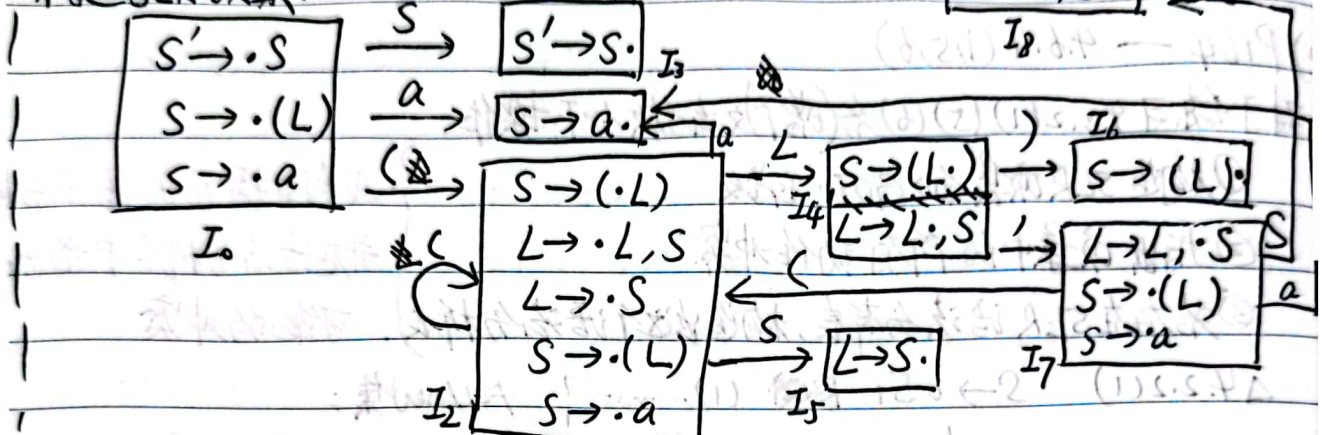 S'→·S
S→·(L)
S→·a
I₀
S
a
(
S'→S·
I₃
S→a·
a
S→(·L)
L→·L,S
L→·S
S→·(L)
S→·a
I₂
(
L
S→(L·)
L→L·,S
I₄
)
I₆
S→(L)·
,
L→L,·S
S→·(L)
S→·a
I₇
(
S
a
S
L→S·
I₅
I₈